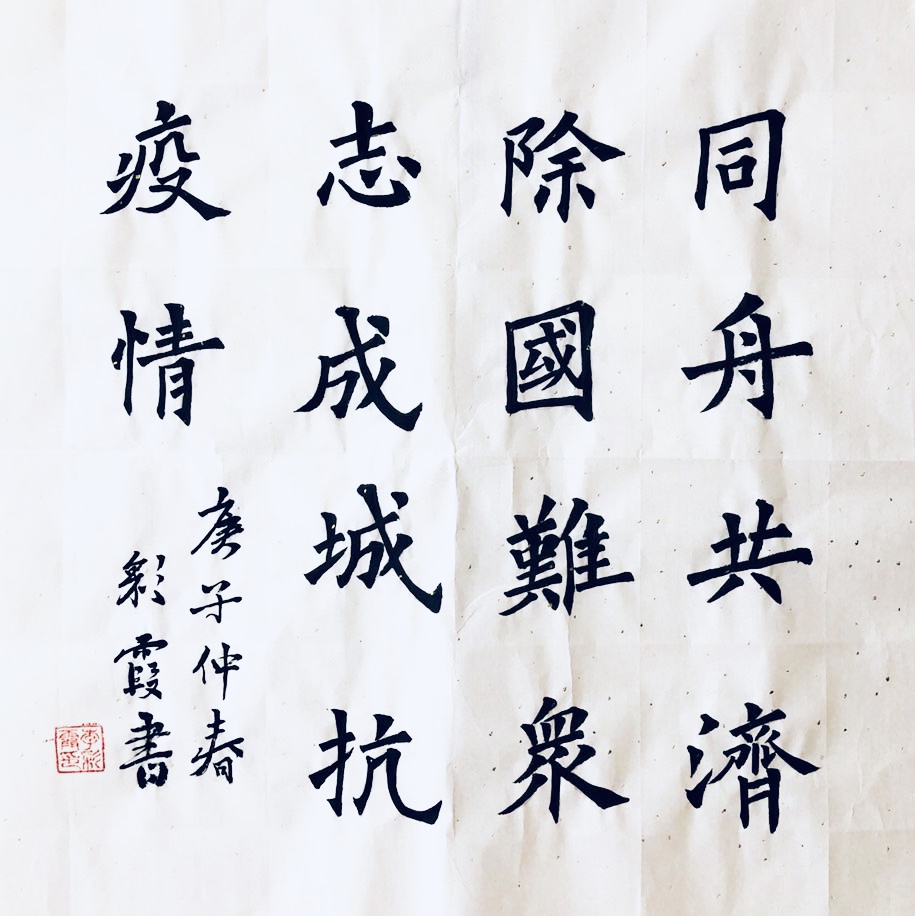 同舟共濟
除國難衆
志成城抗
疫情
庚子仲春
彩霞書